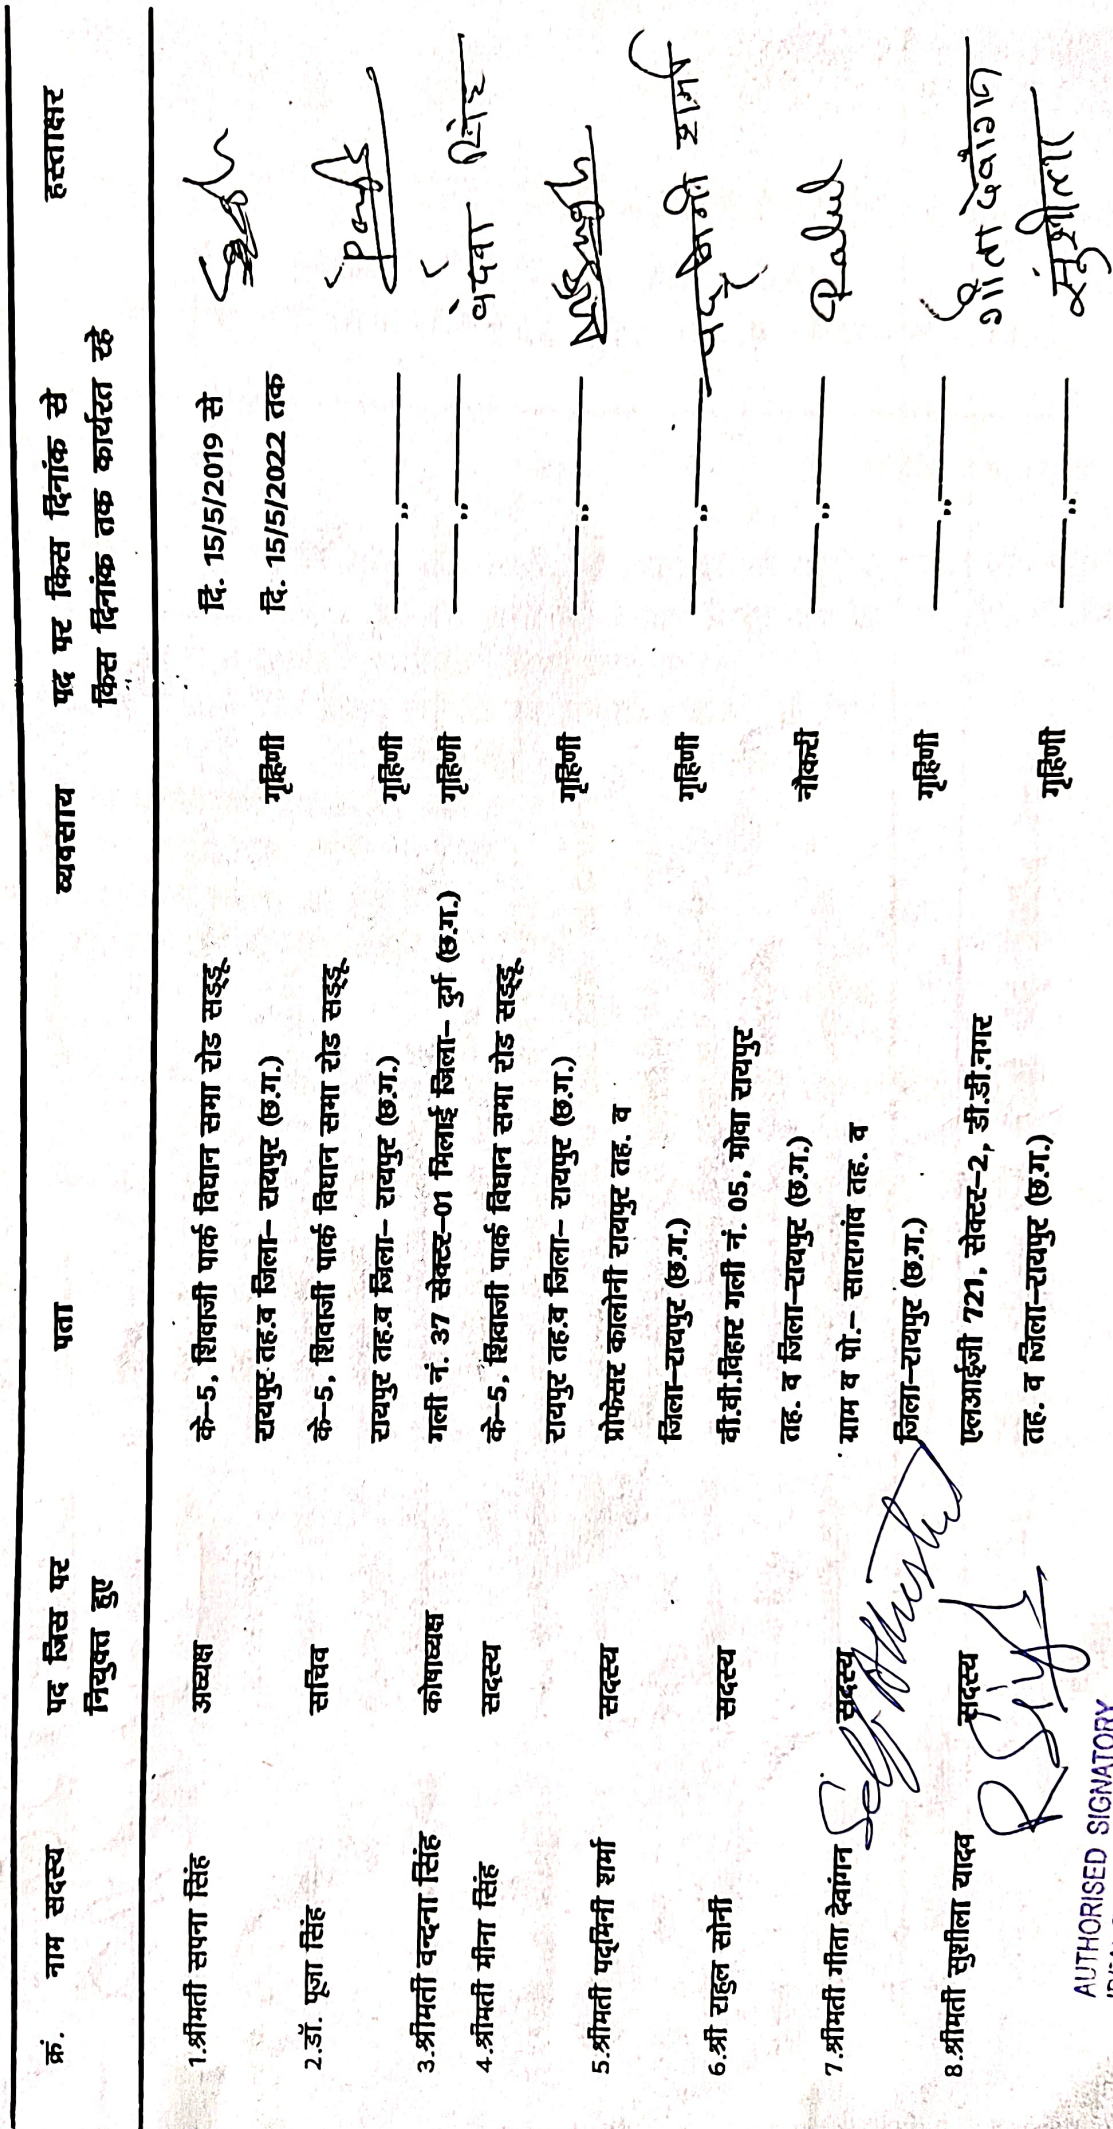 क्रं. नाम सदस्य पद जिस पर पता व्यवसाय पद पर किस दिनांक से हस्ताक्षर
नियुक्त हुए किस दिनांक तक कार्यरत रहे
1.श्रीमती सपना सिंह अध्यक्ष के-5, शिवाजी पार्क विधान सभा रोड सड्डू दि. 15/5/2019 से
रायपुर तह.व जिला- रायपुर (छ.ग.) गृहिणी दि. 15/5/2022 तक
2.डॉ. पूजा सिंह सचिव के-5, शिवाजी पार्क विधान सभा रोड सड्डू
रायपुर तह.व जिला- रायपुर (छ.ग.) गृहिणी ——,,——
3.श्रीमती वन्दना सिंह कोषाध्यक्ष गली नं. 37 सेक्टर-01 भिलाई जिला- दुर्ग (छ.ग.) गृहिणी ——,,—— वंदना सिंह
4.श्रीमती मीना सिंह सदस्य के-5, शिवाजी पार्क विधान सभा रोड सड्डू
रायपुर तह.व जिला- रायपुर (छ.ग.) गृहिणी ——,,——
5.श्रीमती पद्मिनी शर्मा सदस्य प्रोफेसर कालोनी रायपुर तह. व
जिला-रायपुर (छ.ग.) गृहिणी ——,,—— पद्मिनी शर्मा
6.श्री राहुल सोनी सदस्य वी.वी.विहार गली नं. 05, मोवा रायपुर
तह. व जिला-रायपुर (छ.ग.) नौकरी ——,,—— Rahul
7.श्रीमती गीता देवांगन सदस्य ग्राम व पो.- सारागांव तह. व
जिला-रायपुर (छ.ग.) गृहिणी ——,,—— गीता देवांगन
8.श्रीमती सुशीला यादव सदस्य एलआईजी 721, सेक्टर-2, डी.डी.नगर
तह. व जिला-रायपुर (छ.ग.) गृहिणी ——,,—— सुशीला
Self Attested
AUTHORISED SIGNATORY